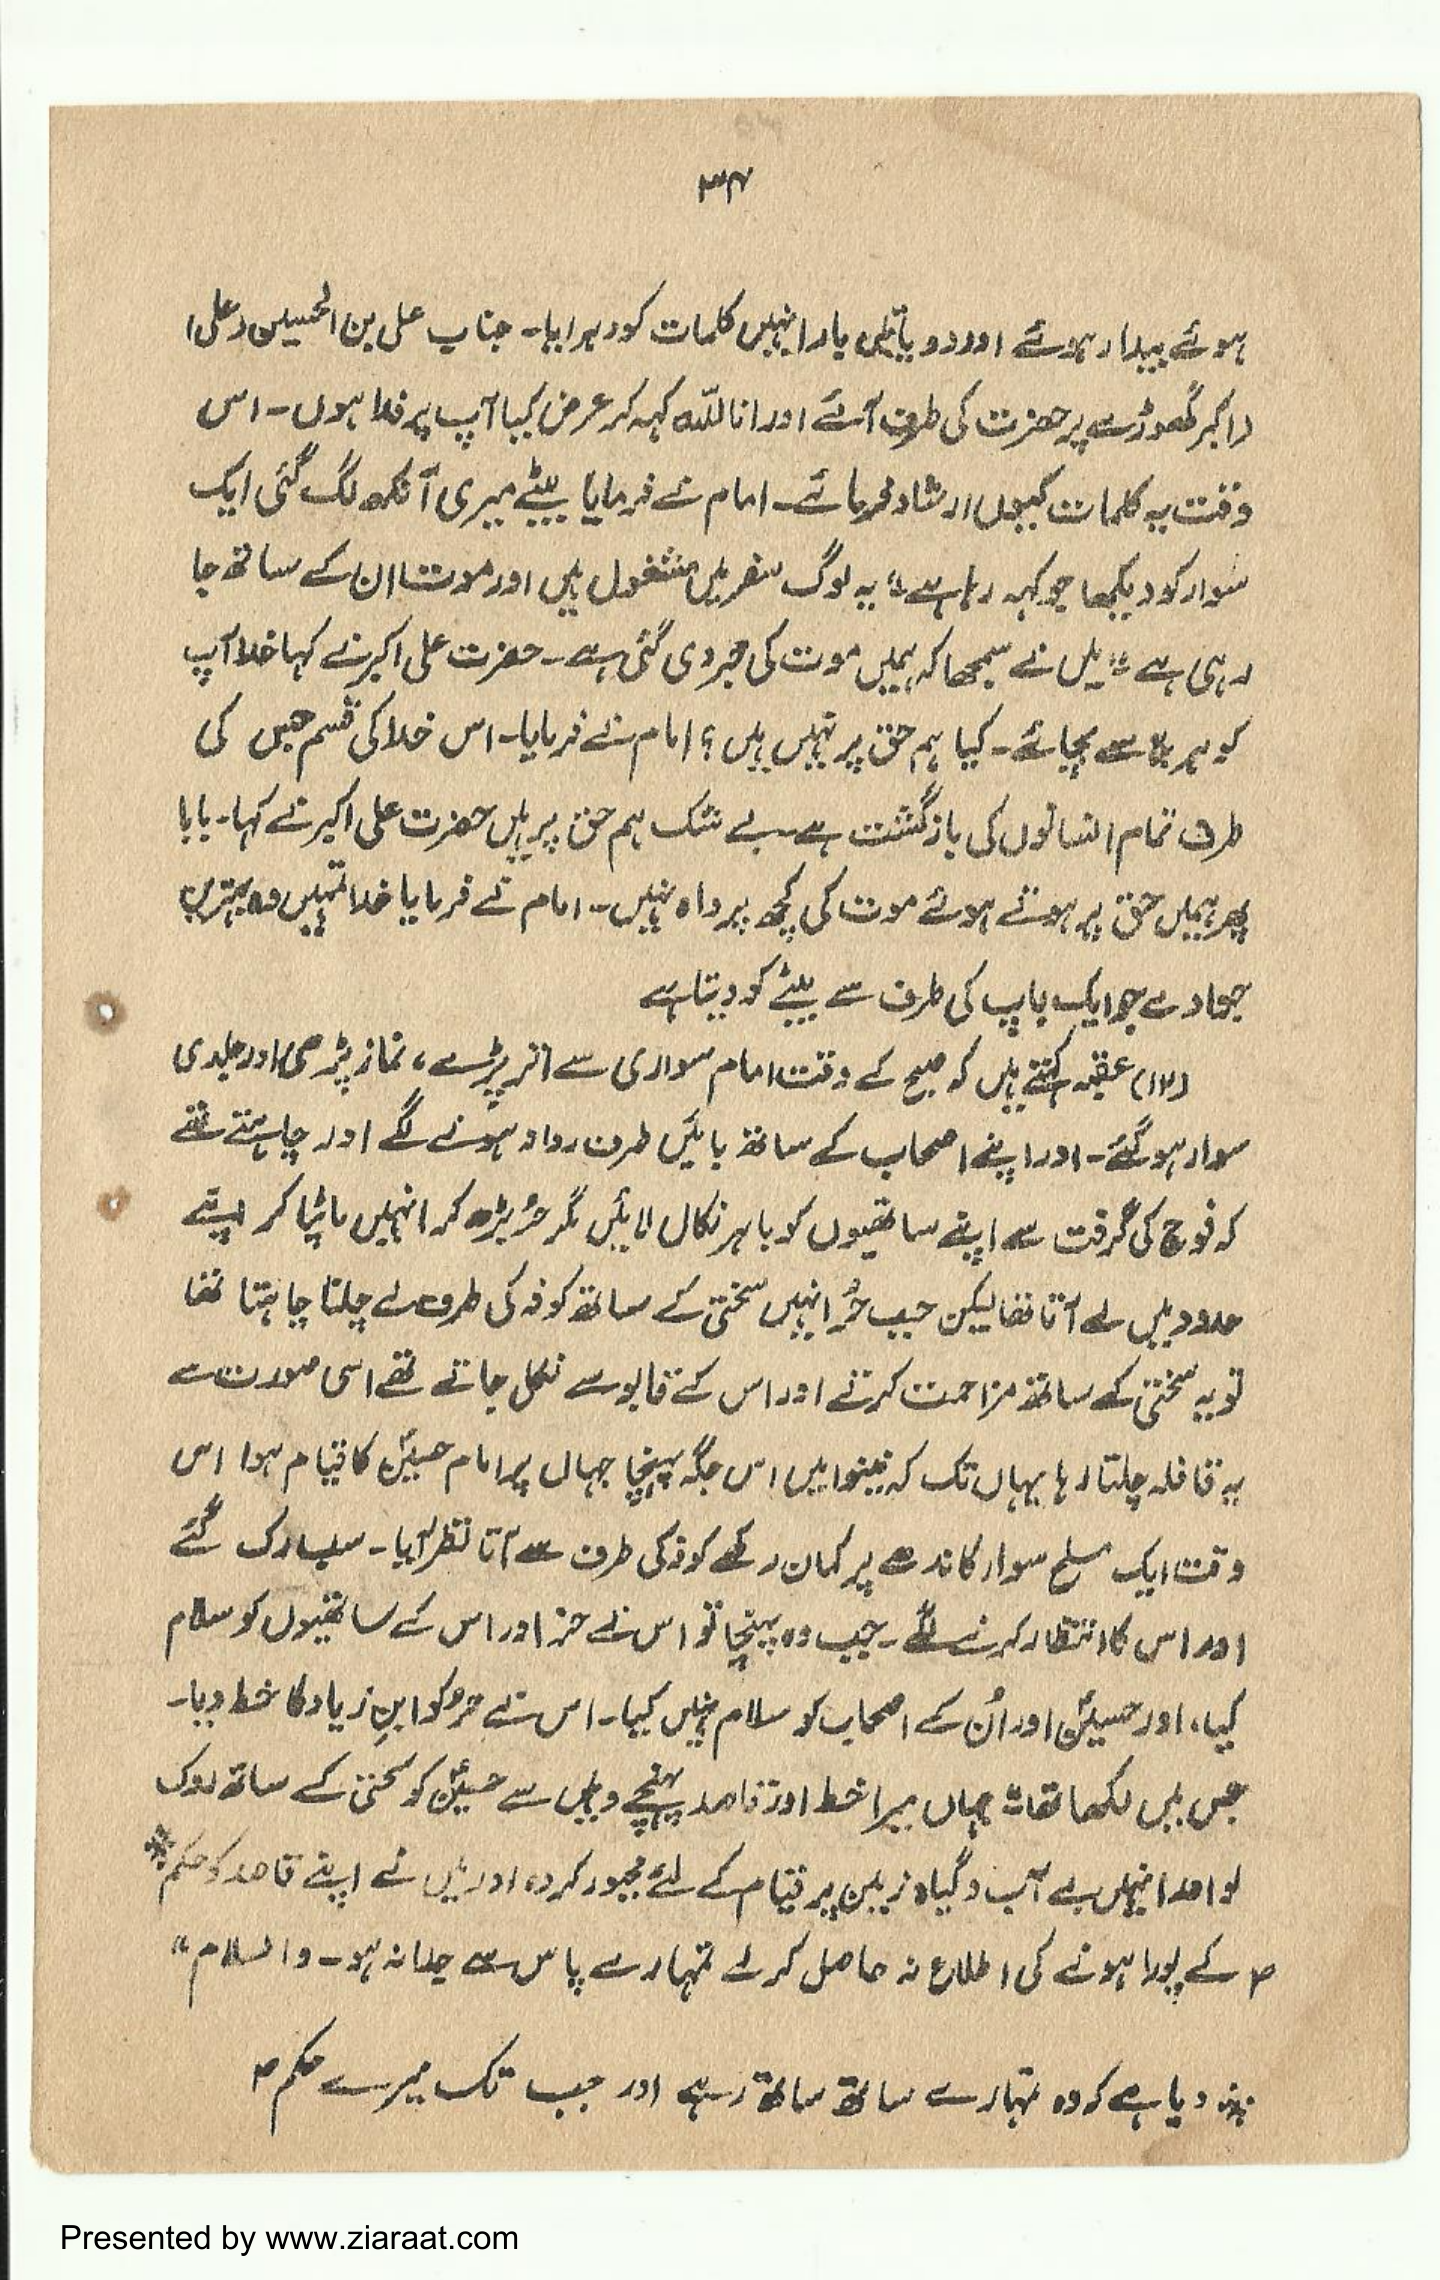 ۳۴
ہوئے بیدار ہوئے اور دو یا تین بار انہیں کلمات کو دہرایا۔ جناب علی بن الحسین (علی)
(اکبر گھوڑے پر حضرت کی طرف آئے اور انا للہ کہہ کر عرض کیا آپ پر فدا ہوں۔ اس
وقت یہ کلمات کیوں ارشاد فرمائے۔ امام نے فرمایا بیٹے میری آنکھ لگ گئی ایک
سوار کو دیکھا جو کہہ رہا ہے "یہ لوگ سفر میں مشغول ہیں اور موت ان کے ساتھ جا
رہی ہے" میں نے سمجھا کہ ہمیں موت کی خبر دی گئی ہے۔ حضرت علی اکبر نے کہا خدا آپ
کو ہر بلا سے بچائے۔ کیا ہم حق پر نہیں ہیں؟ امام نے فرمایا۔ اس خدا کی قسم جس کی
طرف تمام انسانوں کی بازگشت ہے۔ بے شک ہم حق پر ہیں حضرت علی اکبر نے کہا۔ بابا
پھر ہمیں حق پر ہوتے ہوئے موت کی کچھ پرواہ نہیں۔ امام نے فرمایا خدا تمہیں وہ بہترین
جزا دے جو ایک باپ کی طرف سے بیٹے کو دیتا ہے
(۱۳) عقبہ کہتے ہیں کہ صبح کے وقت امام سواری سے اتر پڑے، نماز پڑھی اور جلدی
سوار ہو گئے۔ اور اپنے اصحاب کے ساتھ بائیں طرف روانہ ہونے لگے اور چاہتے تھے
کہ فوج کی گرفت سے اپنے ساتھیوں کو باہر نکال لائیں مگر حُر بڑھ کر انہیں ہٹا کر اپنے
حدود میں لے آتا تھا لیکن جب حُر انہیں سختی کے ساتھ کوفہ کی طرف لے چلنا چاہتا تھا
تو یہ سختی کے ساتھ مزاحمت کرتے اور اس کے قابو سے نکل جاتے تھے اسی صورت سے
یہ قافلہ چلتا رہا یہاں تک کہ نینوا میں اس جگہ پہنچا جہاں پر امام حسینؑ کا قیام ہوا اس
وقت ایک مسلح سوار کاندھے پر کمان رکھے کوفہ کی طرف سے آتا نظر آیا۔ سب رک گئے
اور اس کا انتظار کرنے لگے۔ جب وہ پہنچا تو اس نے حر اور اس کے ساتھیوں کو سلام
کیا، اور حسینؑ اور اُن کے اصحاب کو سلام نہیں کیا۔ اس نے حر کو ابنِ زیاد کا خط دیا۔
جس میں لکھا تھا "جہاں میرا خط اور قاصد پہنچے وہیں سے حسینؑ کو سختی کے ساتھ روک
لو اور انہیں بے آب و گیاہ زمین پر قیام کے لئے مجبور کر دو، اور میں نے اپنے قاصد کو حکم٭
۴ کے پورا ہونے کی اطلاع نہ حاصل کر لے تمہارے پاس سے جدا نہ ہو۔ والسلام"
٭ دیا ہے کہ وہ تمہارے ساتھ ساتھ رہے اور جب تک میرے حکم ۴
Presented by www.ziaraat.com